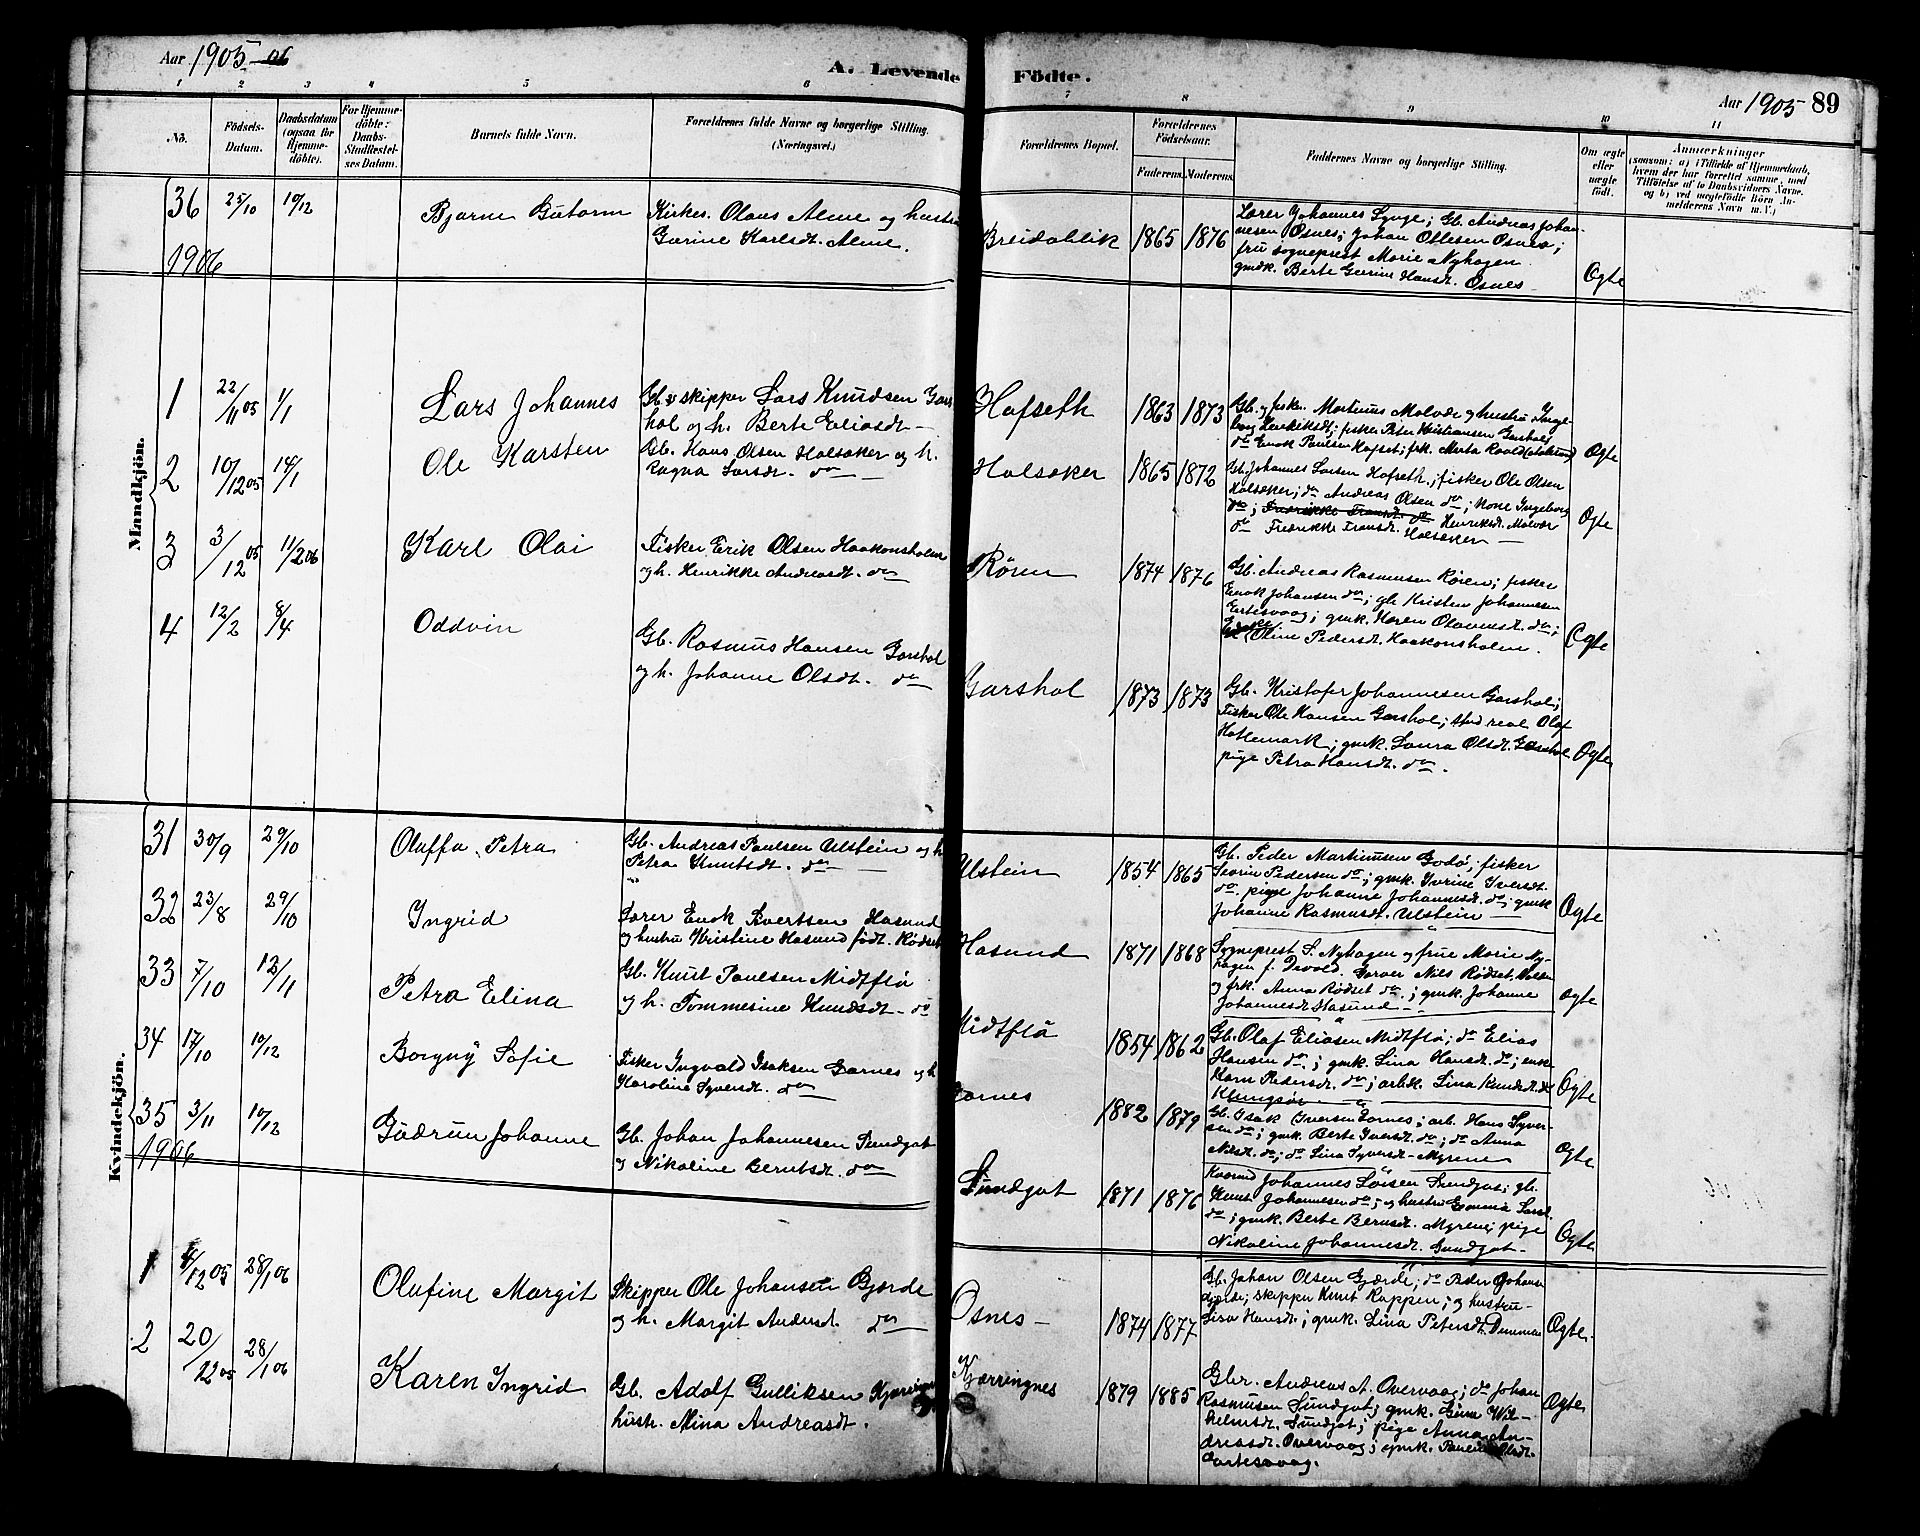 Aar 1905-06
A. Levende Födte.
Aar 1905 89
1 2 3 4 5 6 7 8 9 10 11
No.
Födsels-Datum.
Daabsdatum (ogsaa for Hjemmedöbte).
For Hjemmedöbte: Daabs-Stadfæstelses Datum.
Barnets fulde Navn.
Forældrenes fulde Navne og borgerlige Stilling. (Næringsvei.)
Forældrenes Bopæl.
Forældrenes Födselsaar.
Faderens. Moderens.
Faddernes Navne og borgerlige Stilling.
Om ægte eller uægte födt.
Anmærkninger
(saasom: a) i Tilfælde af Hjemmedaab, hvem der har forrettet samme, med Tilföielse af to Daabsvidners Navne, og b) ved uægtefödte Börn Anmelderens Navn m. V.)
Mandkjön.
36 25/10 10/12 Bjarne Gutorm
Kirkes. Olaus Alme og hustru
Gurine Karlsdt. Alme.
Breidablik 1865 1876
Lærer Johannes Lynge; Gb. Andreas Johan-
nesen Osnes; Johan Ottesen Osnes;
fru sogneprest Marie Nyhagen
gmdk. Berte Gurine Hansdt. Osnes
Ogte
1906
1 22/11 05 1/1 Lars Johannes
Gb. & skipper Lars Knudsen Gars
hol og h. Berte Eliasdt
Hofseth 1863 1873
Gb. og fisker Martinus Molvær og hustru Inge-
borg Henriksdt; fisker Peter Kristiansen Garshol;
do Enok Paulsen Hofset; frk. Marta
Ogte
2 10/12 05 14/1 Ole Karsten
Gb. Hans Olsen Holsøker og h.
Ragna Larsdt. do
Holsøker 1865 1872
Gb. Johannes Larsen Hofseth; fisker Ole Olsen
Holsøker; do Andreas Olsen do; Kone Ingeborg
do; Fredrikke Fransdt. do Henriksdt. Molvær
do Fredrikke Fransdt. Holsøker
Ogte
3 3/12 05 11/2 06 Karl Olai
Fisker Erik Olsen Haakonsholm
og h. Henrikke Andreasdt. do
Røren 1874 1876
Gb. Andreas Rasmusen Røren; fisker
Enok Johansen do; gb Kristen Johannesen
Eartesvaag; gmk. Karen Olavesdt. do;
Enke Oline Pedersdt. Haakonsholm.
Ogte
4 12/2 8/4 Oddvin
Gb. Rasmus Hansen Garshol
og h. Johanne Olsdt. do
Garshol 1873 1873
Gb. Kristofer Johannesen Garshol;
Fisker Ole Hansen Garshol; stud real Olaf
Hatlemark; gmk. Laura Olsdt. Garshol
pige Petra Hansdt. do.
Ogte
Kvindekjön.
31 30/9 29/10 Oluffa Petra
Gb. Andreas Paulsen Ulstein og h
Petra Knutsdt. do
Ulstein 1854 1865
Gb. Peder Martinusen Godø; fisker
Severin Pedersen do; gmk. Ivrine Iversdt.
do. pige Johanne Johannesdt. do; gmk
Johanne Rasmusdt. Ulstein
Ogte
32 23/8 29/10 Ingrid
Lærer Enok Sivertsen Hasund
og hustru Kristine Hasund födt. Rødset
Hasund 1871 1868
Sogneprest S. Nyhagen og frue Marie Ny-
hagen f. Devold. Garver Nils Rødset, Volden
og frk. Anna Rødset do.; gmk. Johanne
Johannesdt. Hasund
Ogte
33 7/10 12/11 Petra Elina
Gb. Knut Paulsen Midtflø
og h. Tommesine Knudsdt. do
Midtflø 1854 1862
Gb. Olaf Eliasen Midtflø; do Elias
Hansen do; gmk. Lina Hansdt. do; enke
Karn Pedersdt. do; arbdk. Lina Knudsdt. do
Klungsør
Ogte
34 17/10 10/12 Borgny Sofie
Fisker Ingvald Isaksen Garnes og h
Karoline Syversdt. do
Garnes 1882 1879
Gb. Isak Iversen Garnes; arb. Hans Syver-
sen do; gmk. Berte Iversdt. do; do Anna
Nilsdt. do; do Lina Syversdt. Myrene
Ogte
35 3/11 10/12 Gudrun Johanne
Gb. Johan Johannesen Sundgot
og Nikoline Berntsdt. do
Sundgot 1871 1876
Kaarmd Johannes Larsen Sundgot; gb.
Knut Johannesen do; og hustru Gomma Larsdt.
do; gmk. Berte Berntsdt. Myrene; pige
Nikoline Johannesdt. Sundgot
Ogte
1906
1 4/12 05 28/1 06 Olufine Margit
Skipper Ole Johansen Gjerde
og h. Margit Andersdt. do
Osnes 1874 1877
Gb. Johan Olsen Gjærde; do Peder Johans
Gjerde; skipper Knut Rappen; og hustru
Lisa Hansdt; gmk. Lina Petersdt. Dimma
Ogte
2 20/12 05 28/1 06 Karen Ingrid
Gb. Adolf Gulliksen Kjærringnes
hustr. Mina Andreasdt.
Kjærringnes 1879 1885
Gbr. Andreas A. Overvaag; do Johan
Rasmusen Sundgot; gmk. Gina Wil-
helmsdt. Sundgot; pige Anna An-
dreasdt. Overvaag; gmk. Pauline Olsdt.
Eartesvaag.
Ogte